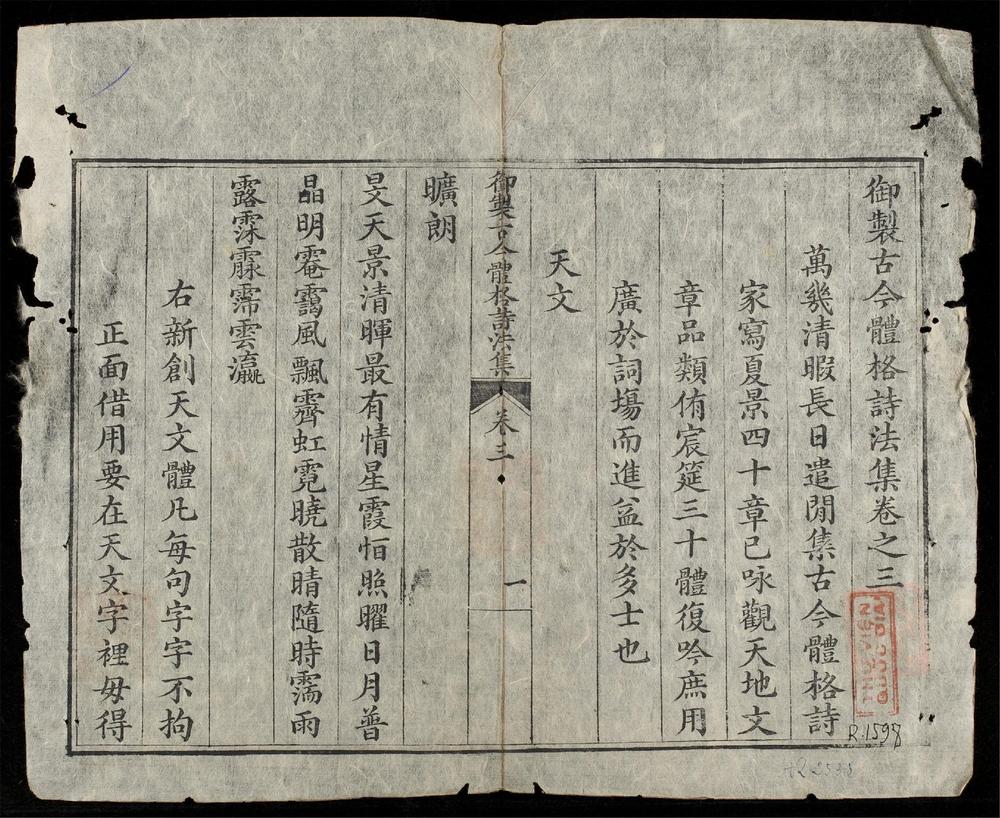 御製古今體格詩法集卷之三
萬幾清暇長日遣閒集古今體格詩
家寫夏景四十章已咏觀天地文
章品類侑宸筵三十體復吟庶用
廣於詞塲而進益於多士也
天文
御製古今體格詩法集 卷三 一
曠朗
旻天景清暉最有情星霞恒照曜日月普
晶明靄風飄霽虹霓曉散晴隨時濡雨
露霂霈雲瀛
右新創天文體凡每句字字不拘
正面借用要在天文字裡毋得
THƯ VIỆN
QUỐC GIA